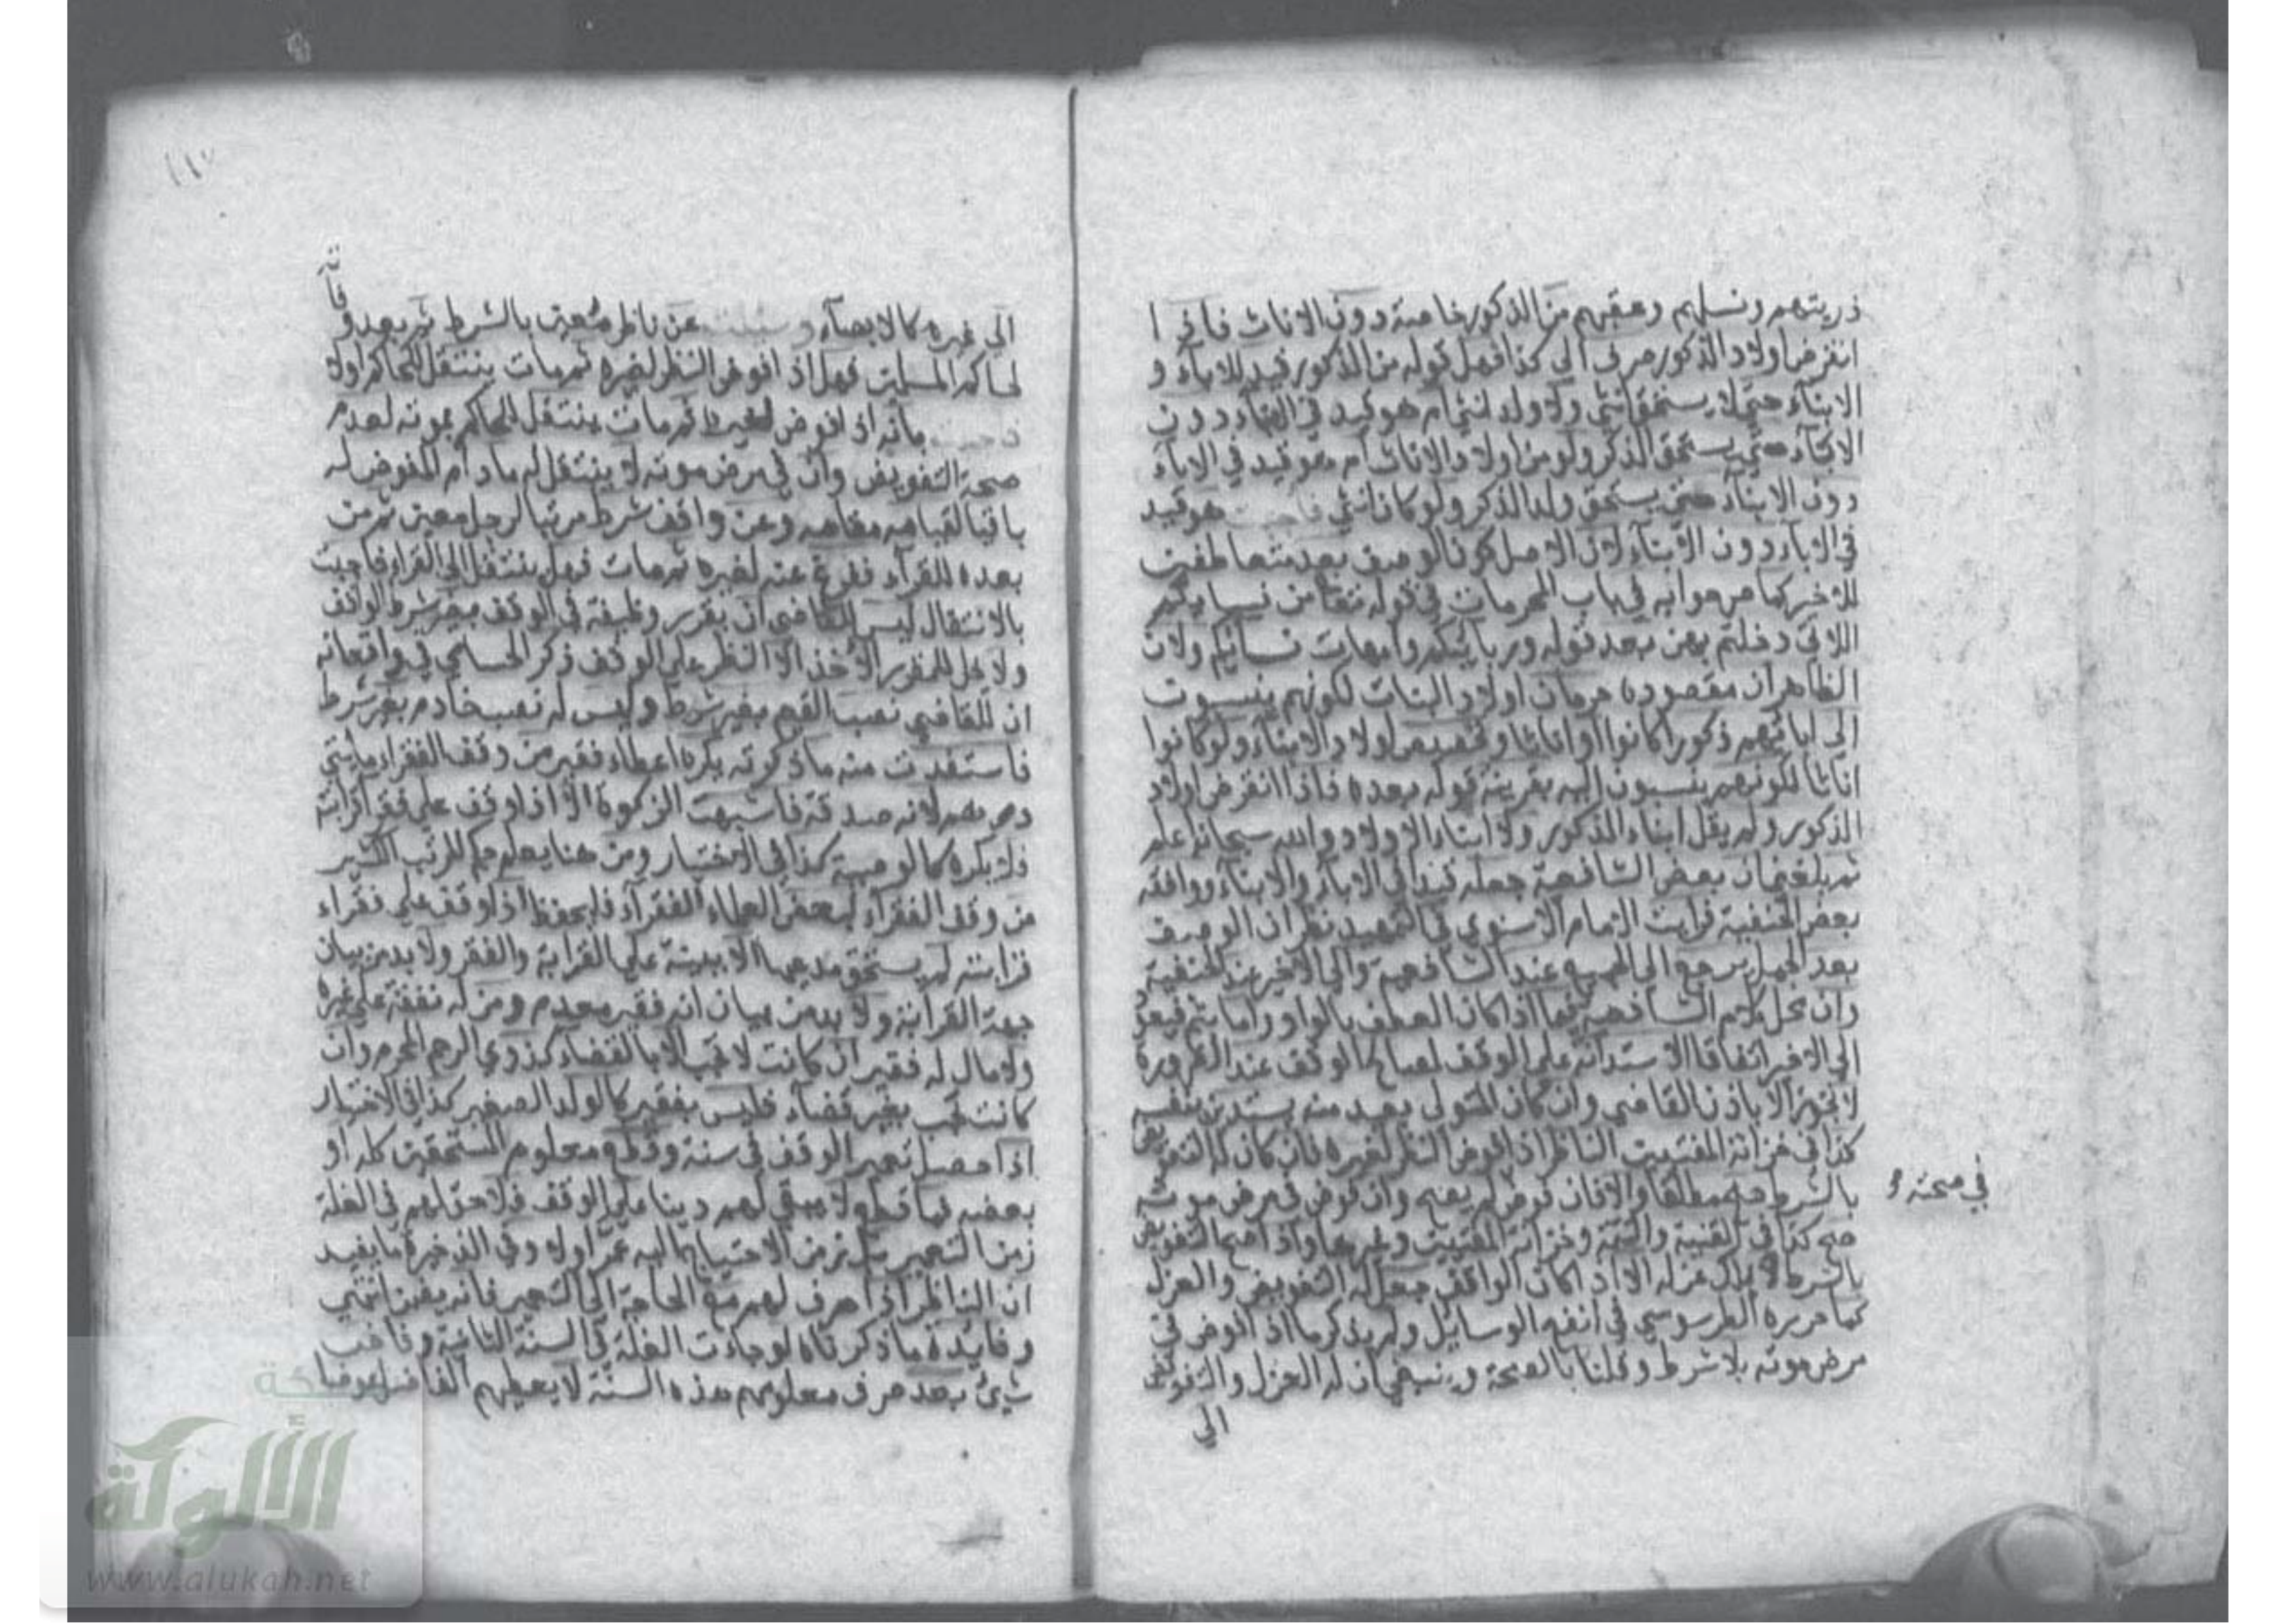 ذريتهم ونسلهم وعقبهم من الذكور خاصة دون الاناث فاذا
انقرض اولاد الذكور صرف الى كذا فهل قوله من الذكور قيد للاباء و
الابناء حتى لا يستحق انثى ولا ولد انثى ام هو قيد في الابناء دون
الاباء حتى يستحق الذكر ولو من اولاد الاناث ام هو قيد في الاباء
دون الابناء حتى يستحق ولد الذكر ولو كان انثى فاجبت هو قيد
في الاباء دون الابناء لان الاصل كون الوصف بعد متعاطفين
للاخير كما صرحوا به في باب المحرمات في قوله تعالى من نسايكم
اللاتي دخلتم بهن بعد قوله وربائبكم وامهات نسائكم ولان
الظاهر ان مقصوده حرمان اولاد البنات لكونهم ينسبون
الى ابائهم ذكورا كانوا او اناثا وتخصيص اولاد الابناء ولو كانوا
اناثا لكونهم ينسبون اليه بقرينة قوله بعده فاذا انقرض اولاد
الذكور ولم يقل ابناء الذكور ولا ابناء الاولاد والله سبحانه اعلم
ثم بلغني ان بعض الشافعية جعله قيدا في الاباء والابناء ووافقه
بعض الحنفية فرايت الامام الاسنوي في التمهيد نظر ان الوصف
بعد الجمل يرجع الى الجميع عند الشافعية والى الاخير عند الحنفية
وان محل كلام الشافعية فيما اذا كان العطف بالواو واما بثم فيعود
الى الاخير اتفاقا الاستدانة على الوقف لمصالح الوقف عند الضرورة
لا تجوز الا باذن القاضي وان كان المتولي يبعد منه يستدين بنفسه
كذا في خزانة المفتيين الناظر اذا فوض النظر لغيره فان كان له التفويض
بالشرط صح مطلقا والا فان فوض لم يصح وان فوض في مرض موته
في صحته
صح كذا في القنية والتتمة وخزانة المفتيين وغيرها واذا صح التفويض
بالشرط لا يملك عزله الا اذا كان الواقف جعل له التفويض والعزل
كما حرره الطرسوسي في انفع الوسايل ولم يذكر ما اذا فوض في
مرض موته بلا شرط وقلنا بالصحة وينبغي ان له العزل والتفويض
الى
الى غيره كالايصاء وسئلت عن ناظر معين بالشرط ثم بعد وفاته
لحاكم المسلمين فهل اذا فوض النظر لغيره ثم مات ينتقل للحاكم اولا
فاجبت بانه اذا فوض لغيره ثم مات ينتقل للحاكم بموته لعدم
صحة التفويض وان في مرض موته لا ينتقل له ما دام المفوض له
باقيا لقيامه مقامه وعن واقف شرط مرتبا لرجل معين ثم من
بعده للفقراء ففرغ عنه لغيره ثم مات فهل ينتقل الى الفقراء فاجبت
بالانتقال ليس للقاضي ان يقرر وظيفة في الوقف بغير شرط الواقف
ولا يحل للمقرر الاخذ الا النظر على الوقف ذكر الحسامي في واقعاته
ان للقاضي نصب القيم بغير شرط وليس له نصب خادم بغير شرط
فاستفدت منه ما ذكرته يكره اعطاء فقير من وقف الفقراء مايتي
درهم لانه صدقة فاشبهت الزكوة الا اذا وقف على فقراء قرابته
فلا يكره كالوصية كذا في الاختيار ومن هنا يعلم حكم المرتب الكثير
من وقف الفقراء لبعض العلماء الفقراء فليحفظ اذا وقف على فقراء
قرابته لم يستحق مدعيها الا ببينة على القرابة والفقر ولا بد من بيان
جهة القرابة ولا بد من بيان انه فقير معدم ومن له نفقة على غيره
ولا مال له فقير ان كانت لا تجب الا بالقضاء كذوي الرحم المحرم وان
كانت تجب بغير قضاء فليس بفقير كالولد الصغير كذا في الاختيار
اذا حصل تعمير الوقف في سنة وقطع معلوم المستحقين كله او
بعضه فما قطع لا يبقى لهم دينا على الوقف فلا حق لهم في الغلة
زمن التعمير بل زمن الاحتياج اليه عمر اولا وفي الذخيرة ما يفيد
ان الناظر اذا صرف لهم مع الحاجة الى التعمير فانه يضمن انتهى
وفايدة ما ذكرناه لو جاءت الغلة في السنة الثانية وفاض
شيئ بعد صرف معلومهم هذه السنة لا يعطيهم الفاضل عوضا
شبكة
الألوكة
www.alukah.net